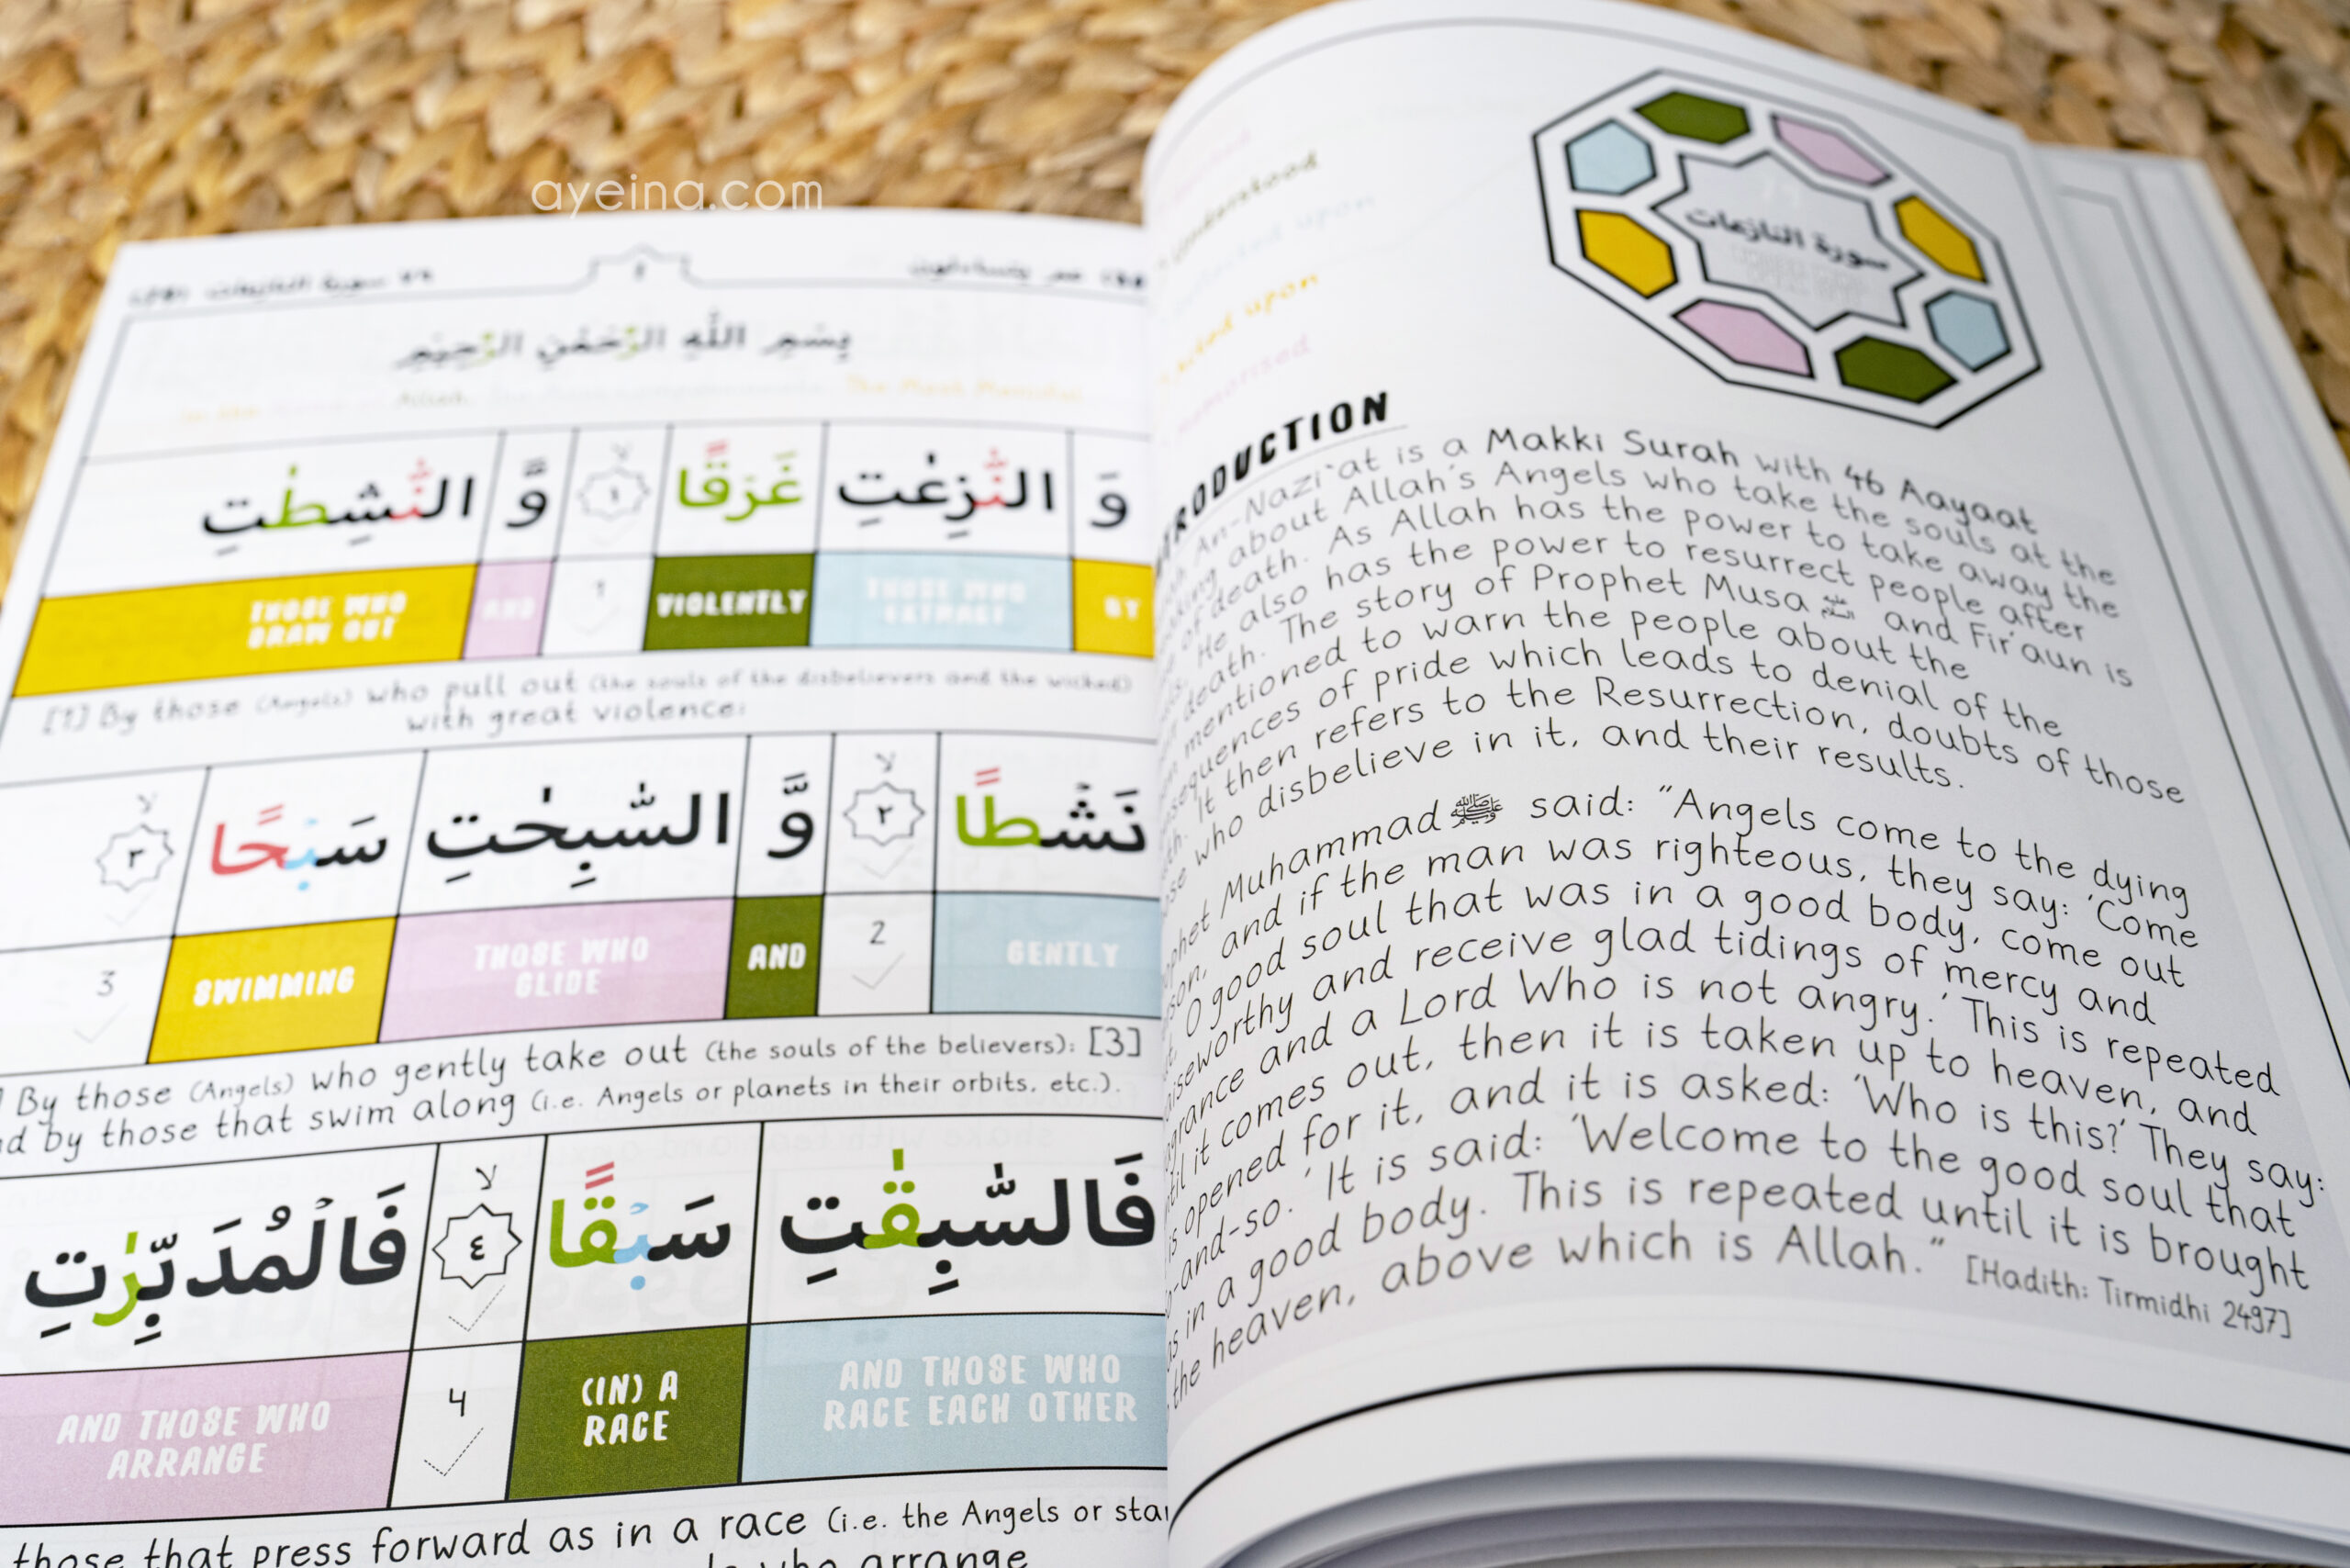 ayeina.com
سورة النازعات
عم يتساءلون
بِسْمِ اللّٰهِ الرَّحْمٰنِ الرَّحِيْمِ
Allah
وَ النّٰزِعٰتِ غَرْقًا ١ وَّ النّٰشِطٰتِ
BY THOSE WHO EXTRACT VIOLENTLY 1 AND THOSE WHO DRAW OUT
[1] By those (Angels) who pull out (the souls of the disbelievers and the wicked)
with great violence;
نَشْطًا ٢ وَّ السّٰبِحٰتِ سَبْحًا ٣
GENTLY 2 AND THOSE WHO GLIDE SWIMMING 3
By those (Angels) who gently take out (the souls of the believers); [3]
by those that swim along (i.e. Angels or planets in their orbits, etc.).
فَالسّٰبِقٰتِ سَبْقًا ٤ فَالْمُدَبِّرٰتِ
AND THOSE WHO RACE EACH OTHER (IN) A RACE 4 AND THOSE WHO ARRANGE
those that press forward as in a race (i.e. the Angels or
who arrange
understood
upon
upon
سورة النازعات
RODUCTION
An-Nazi'at is a Makki Surah with 46 Aayaat
about Allah's Angels who take the souls at the
of death. As Allah has the power to take away the
He also has the power to resurrect people after
death. The story of Prophet Musa and Fir'aun is
mentioned to warn the people about the
sequences of pride which leads to denial of the
It then refers to the Resurrection, doubts of those
who disbelieve in it, and their results.
Muhammad ﷺ said: "Angels come to the dying
and if the man was righteous, they say: 'Come
O good soul that was in a good body, come out
and receive glad tidings of mercy and
and a Lord Who is not angry.' This is repeated
it comes out, then it is taken up to heaven, and
opened for it, and it is asked: 'Who is this?' They say:
-and-so.' It is said: 'Welcome to the good soul that
in a good body. This is repeated until it is brought
the heaven, above which is Allah." [Hadith: Tirmidhi 2497]